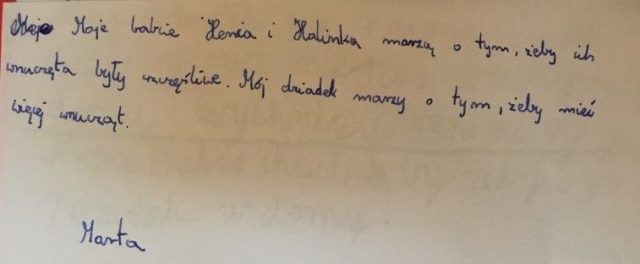 Moje Moje babcie Henia i Halinka marzą o tym, żeby ich
wnuczęta były szczęśliwe. Mój dziadek marzy o tym, żeby mieć
więcej wnucząt.
Marta